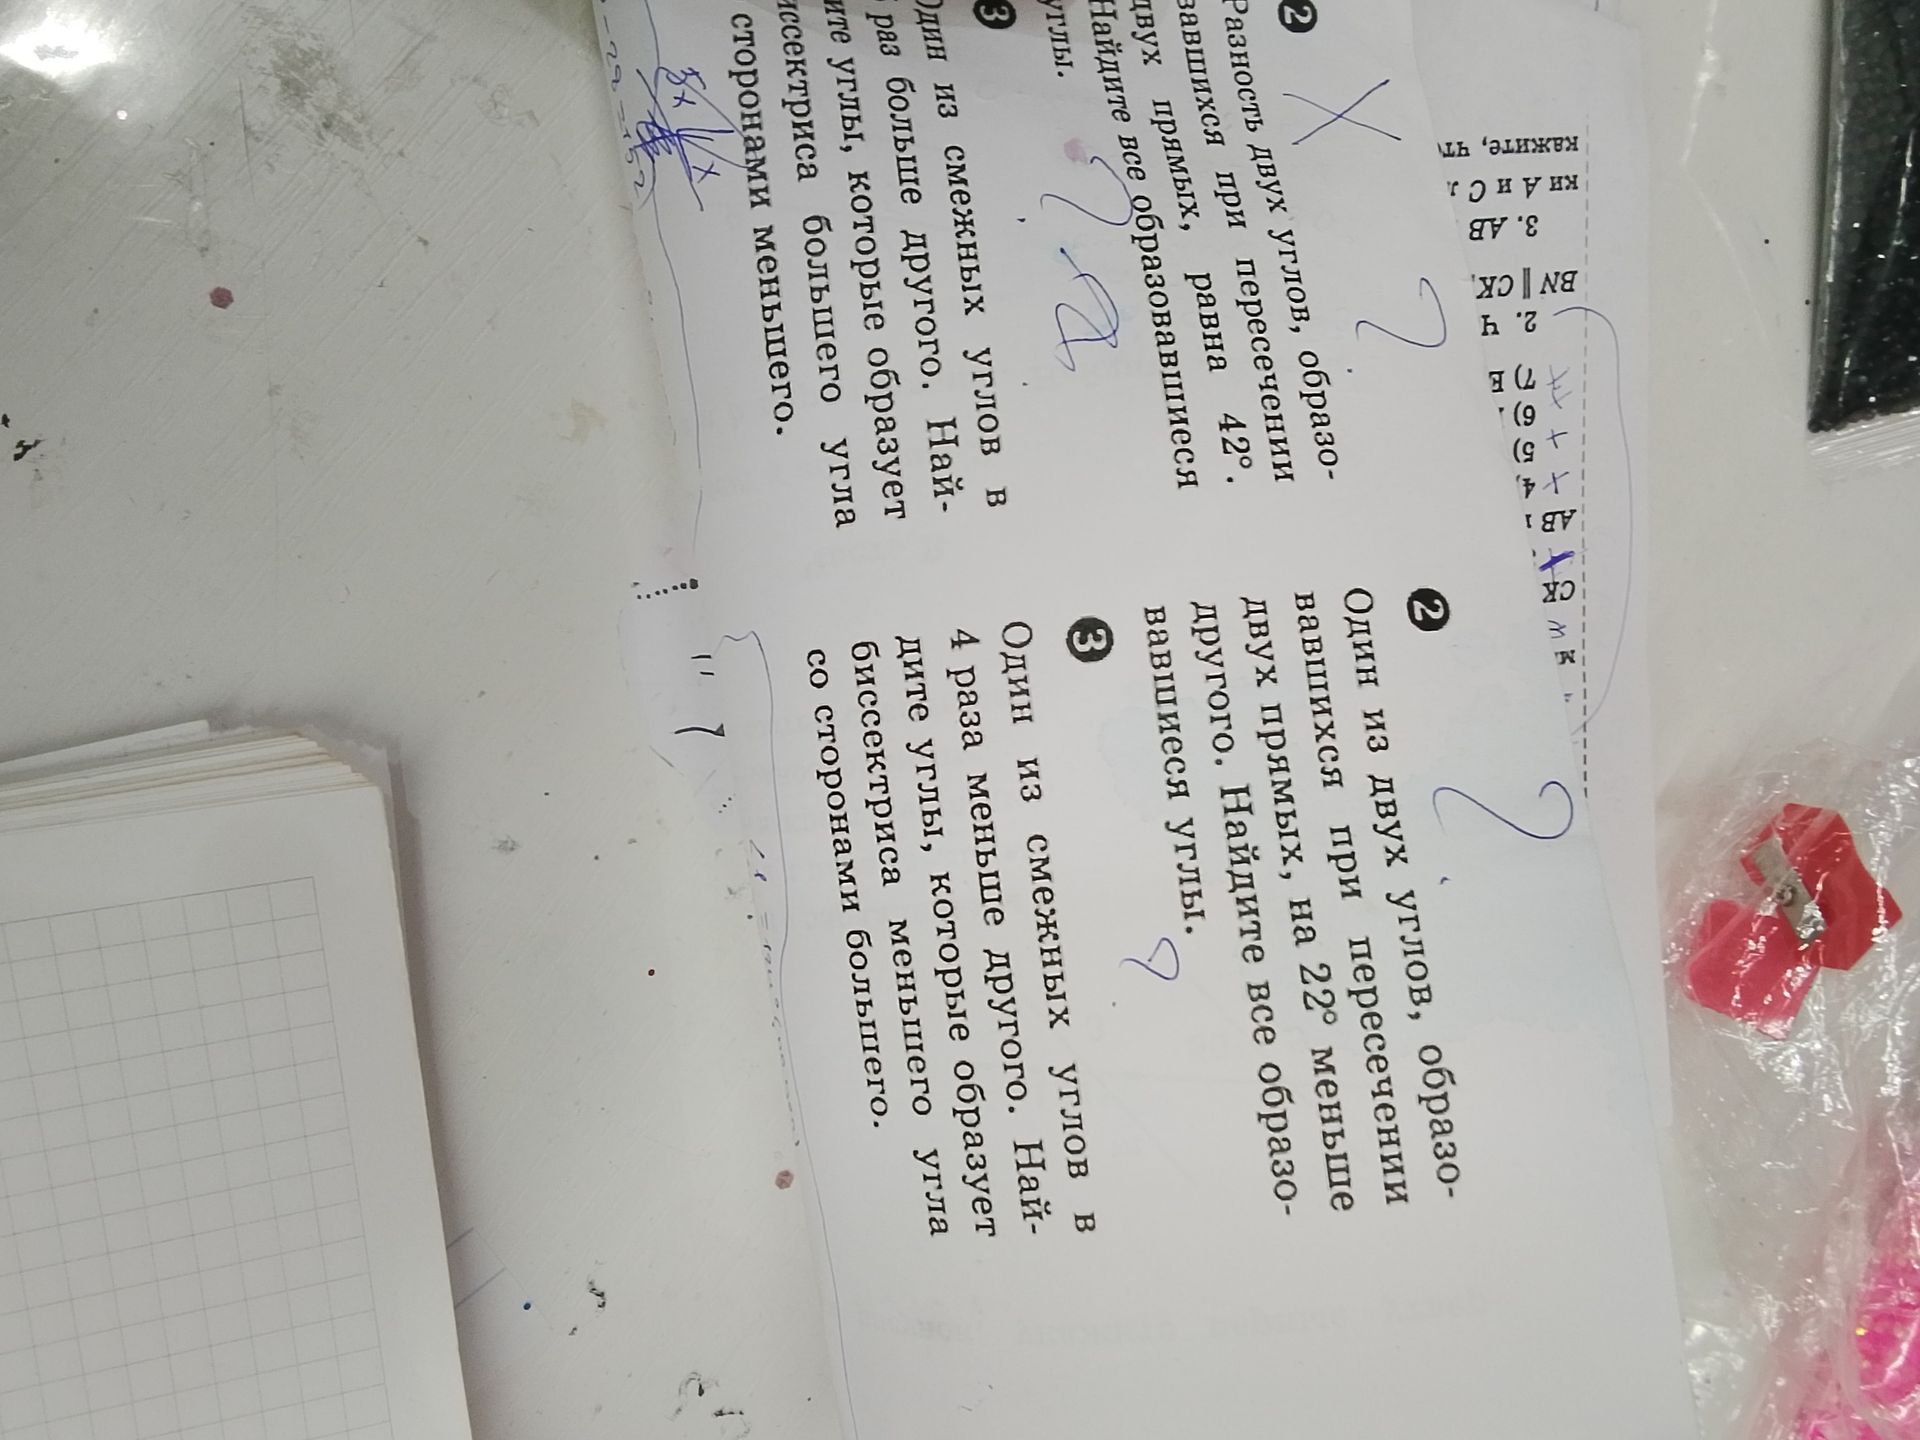 2
Разность двух углов, образо-
вавшихся при пересечении
двух прямых, равна 42°.
Найдите все образовавшиеся
углы.
3
Один из смежных углов в
раз больше другого. Най-
ите углы, которые образует
иссектриса большего угла
сторонами меньшего.
5x
x
2
Один из двух углов, образо-
вавшихся при пересечении
двух прямых, на 22° меньше
другого. Найдите все образо-
вавшиеся углы.
3
Один из смежных углов в
4 раза меньше другого. Най-
дите углы, которые образует
биссектриса меньшего угла
со сторонами большего.
СК
АВ
4
5)
6)
7)
2.
BN || CK
3. AB
ки А и С
кажите,